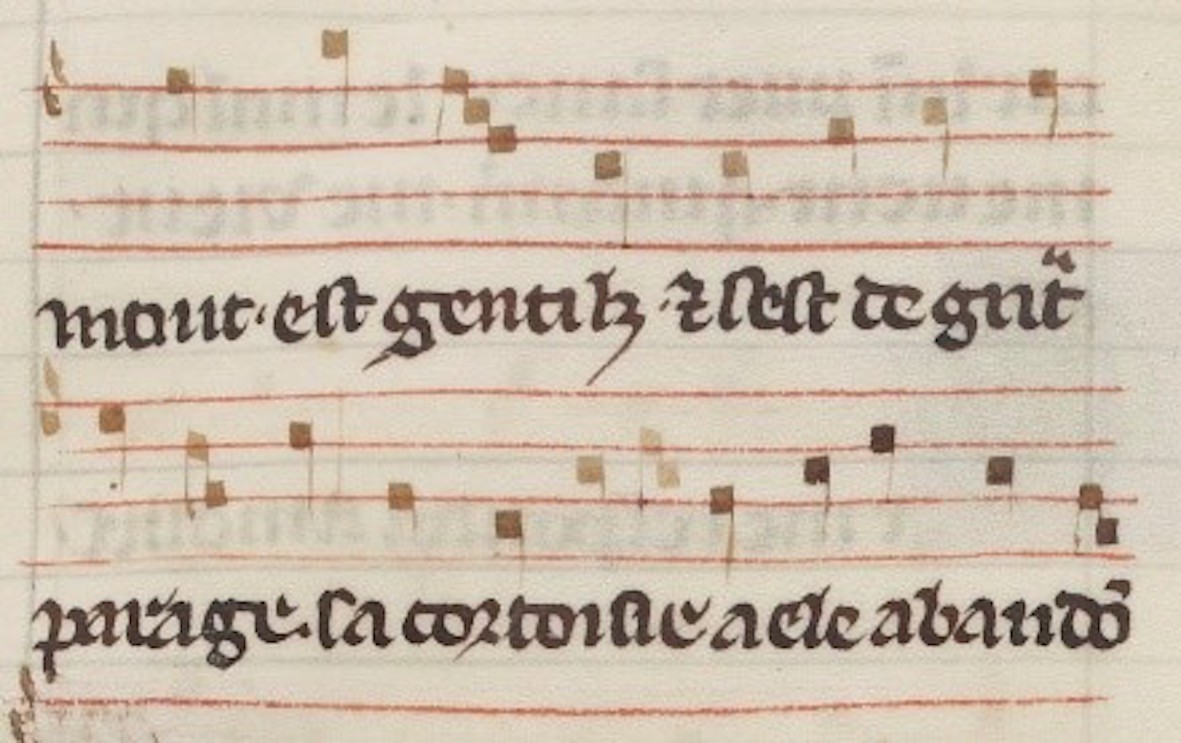 mout · est gentilz · ⁊ sest de gͣnt
parage · sa cortoisie a ele abandō